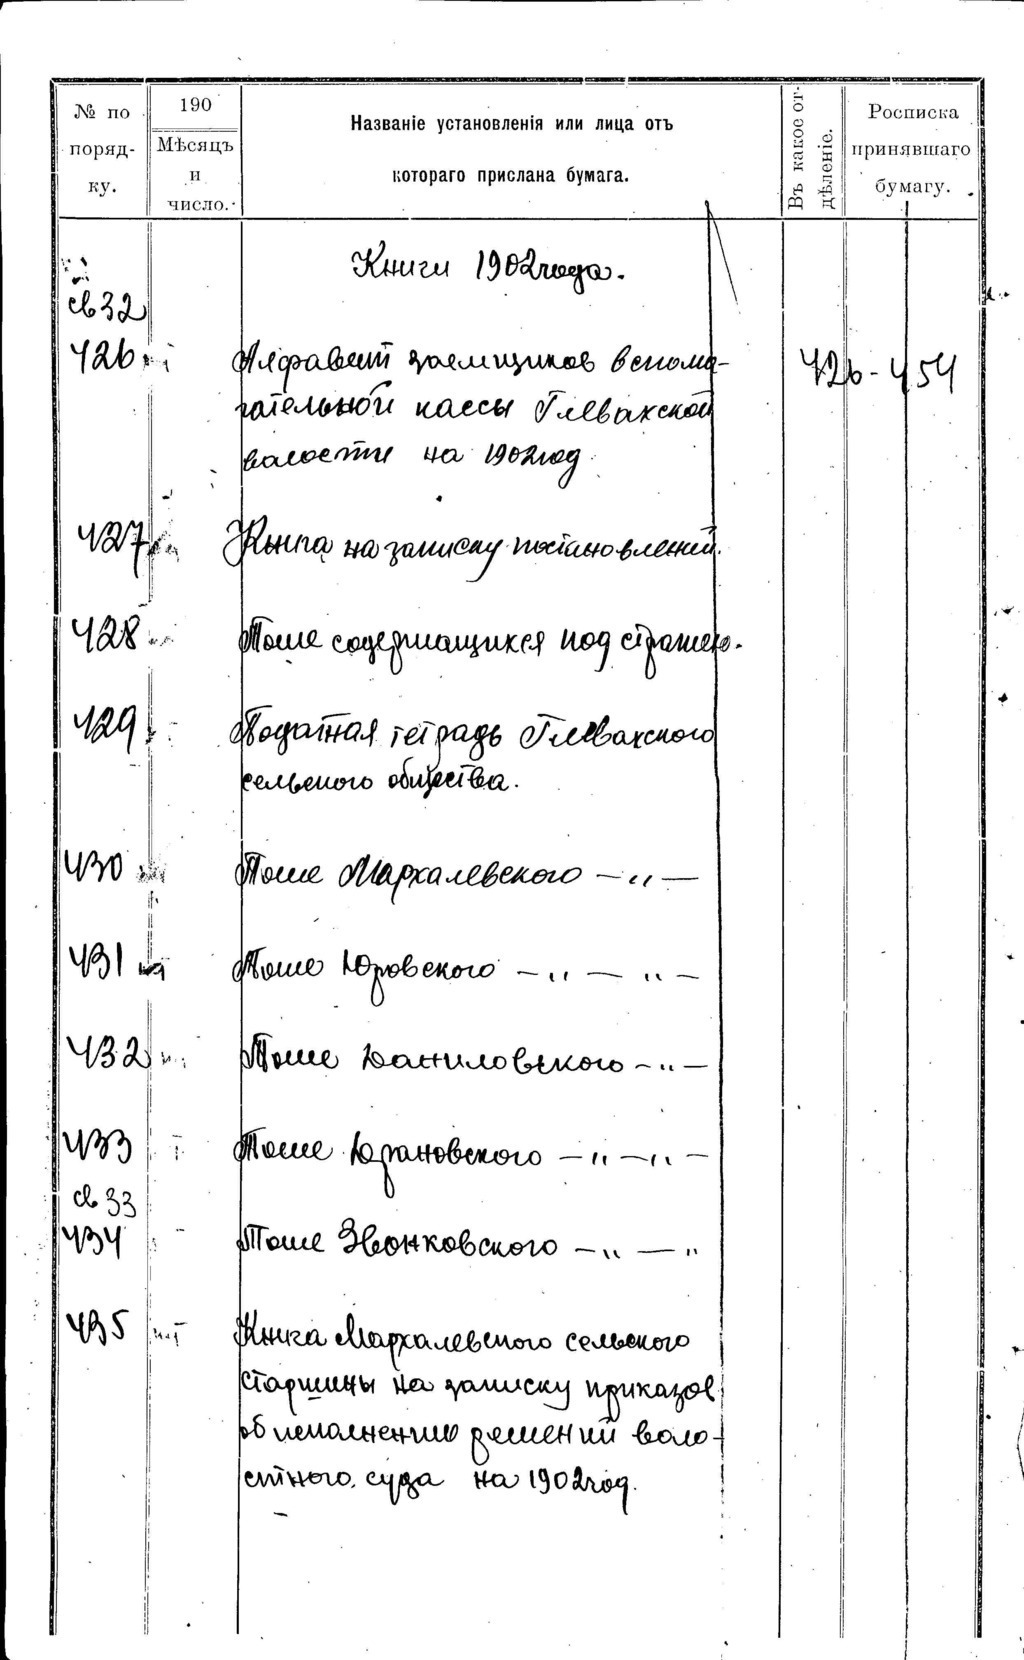 № по порядку.
190
Мѣсяцъ и число.
Названіе установленія или лица отъ
котораго прислана бумага.
Въ какое отдѣленіе.
Росписка принявшаго бумагу.
Книги 1902 года.
св 32
426 Алфавит заемщиков вспомо- 426-454
гательной кассы Глевахской
волости на 1902 год.
427 Книга на записку постановлений.
428 Тоже содержащихся под стражею.
429 Податная тетрадь Глевахского
сельского общества.
430 Тоже Мархалевского —〃—
431 Тоже Юровского —〃—〃—
432 Тоже Даниловского —〃—
433 Тоже Юрановского —〃—〃—
св 33
434 Тоже Звонковского —〃—〃
435 Книга Мархалевского сельского
старшины на записку приказов
об исполнению решений воло-
стного суда на 1902 год.